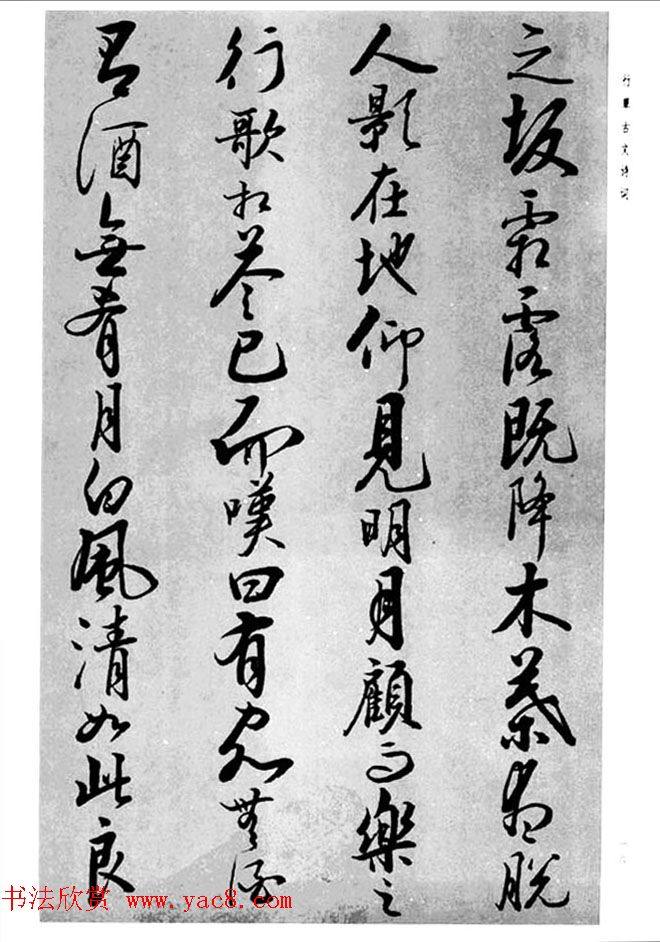 行 古文诗词
之坂霜露既降木葉盡脱
人影在地仰見明月顧而樂之
行歌相答已而嘆曰有客無酒
有酒無肴月白風清如此良
书法欣赏 www.yac8.com